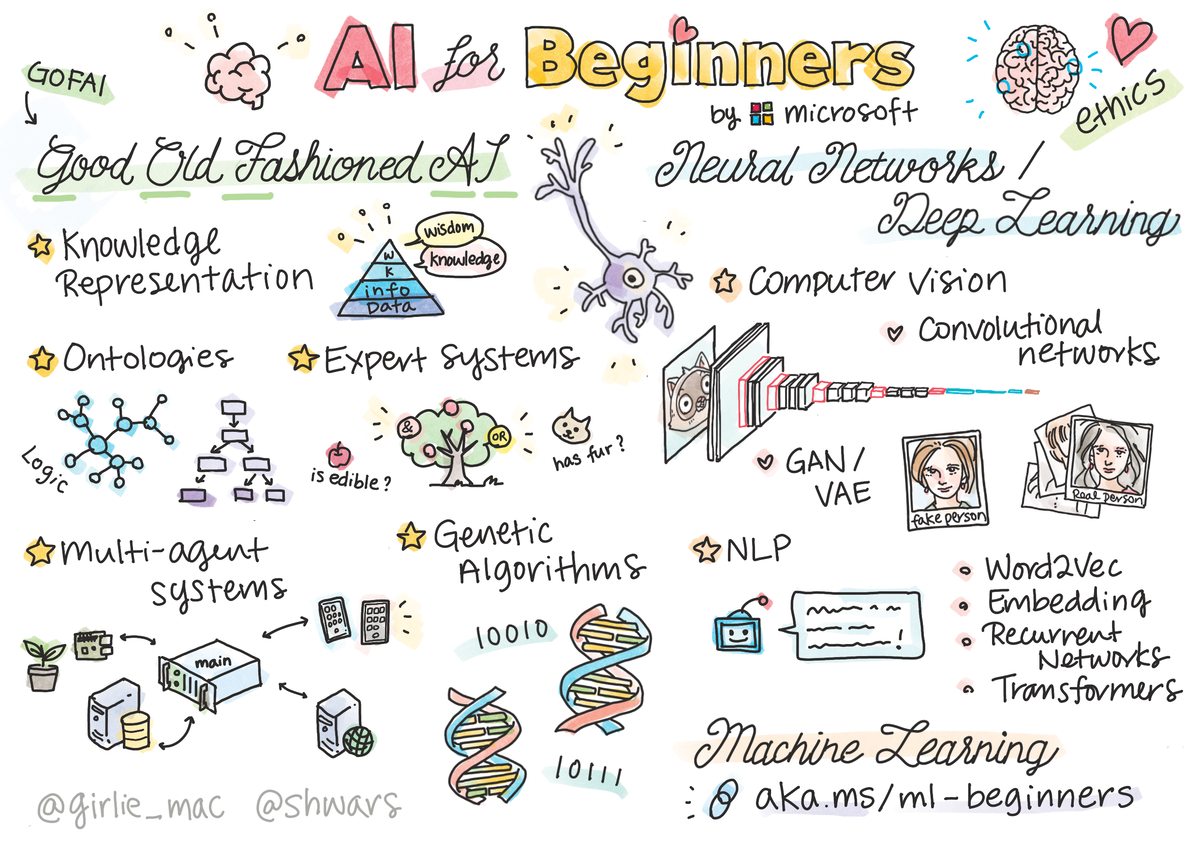 AI for Beginners
by microsoft
ethics
GOFAI
Good Old Fashioned AI
Knowledge
Representation
wisdom
knowledge
W
K
info
Data
Ontologies
Logic
Expert Systems
is edible?
&
OR
has fur?
Multi-agent
systems
main
Genetic
Algorithms
10010
10111
Neural Networks /
Deep Learning
Computer Vision
Convolutional
networks
GAN /
VAE
fake person
Real person
NLP
!
Word2Vec
Embedding
Recurrent
Networks
Transformers
Machine Learning
aka.ms/ml-beginners
@girlie_mac @shwars